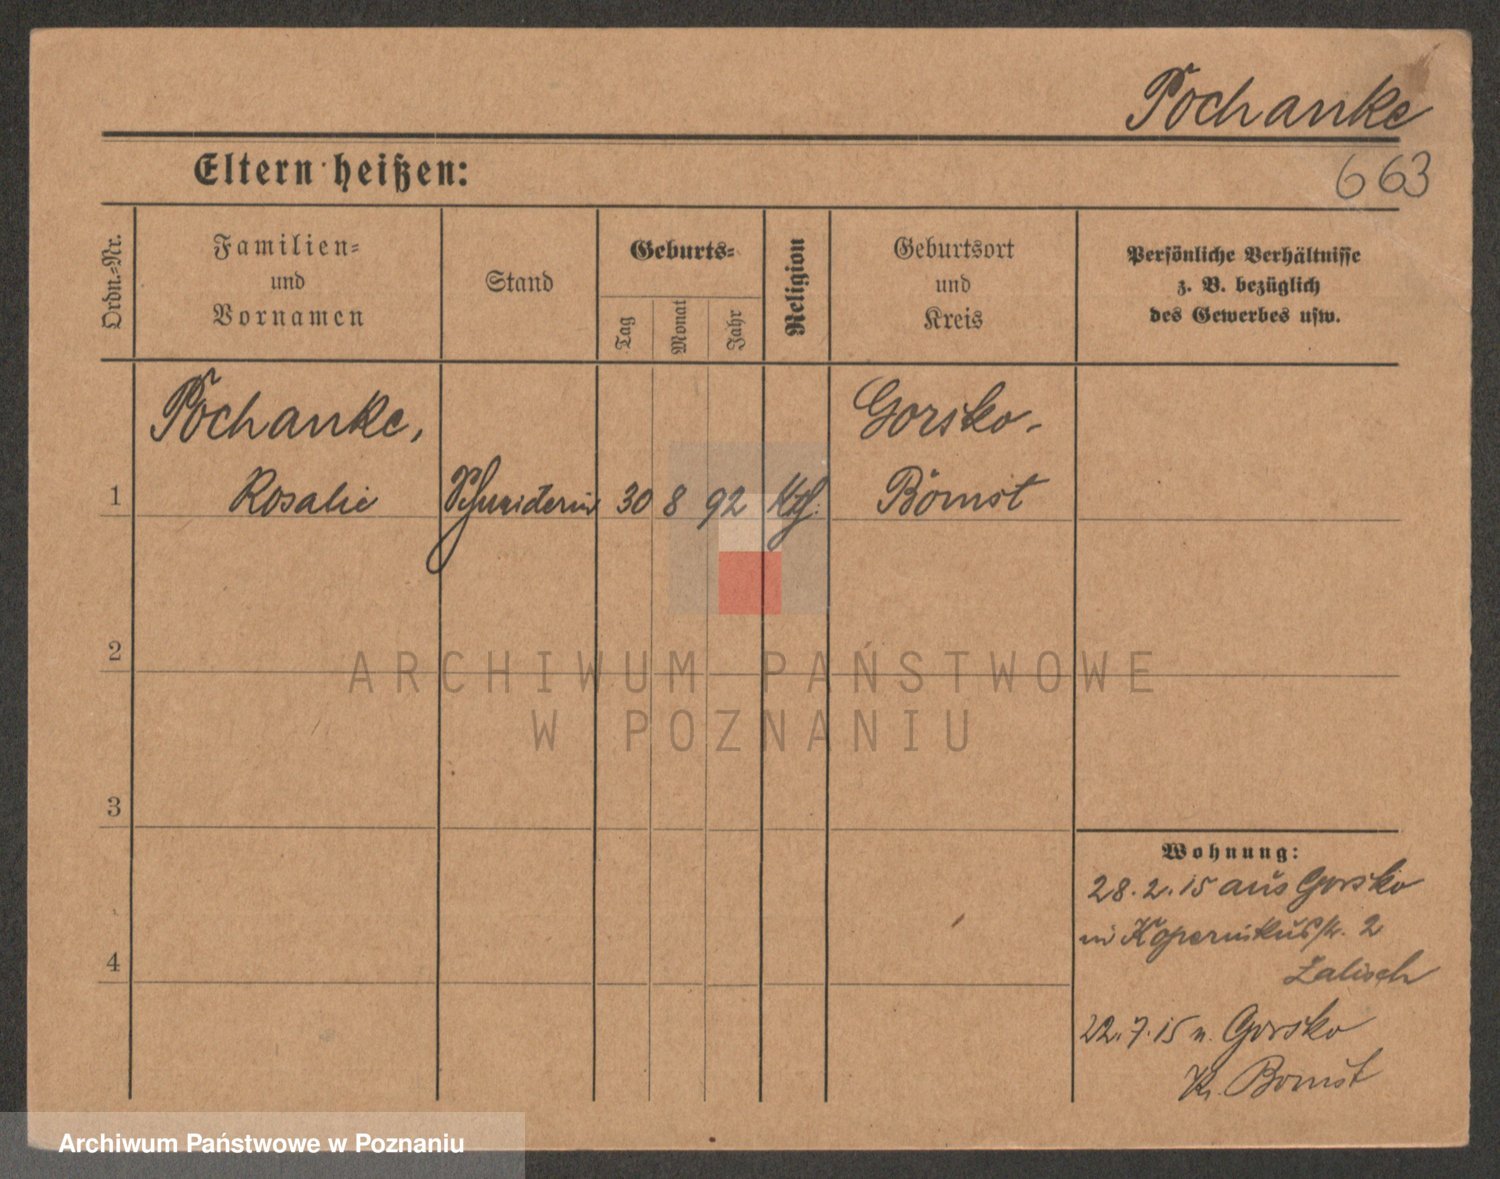 Pochanke
663
Eltern heißen:
Ordn.-Nr.
Familien-
und
Vornamen
Stand
Geburts-
Tag
Monat
Jahr
Religion
Geburtsort
und
Kreis
Persönliche Verhältnisse
z. B. bezüglich
des Gewerbes usw.
Pochanke,
Gorsko-
1 Rosalie Schneiderin 30 8 92 Kth. Bomst
2
3
4
Wohnung:
28.2.15 aus Gorsko
in Kopernikusstr. 2
Lalisch
22.7.15 n. Gorsko
Kr. Bomst
ARCHIWUM PAŃSTWOWE
W POZNANIU
Archiwum Państwowe w Poznaniu